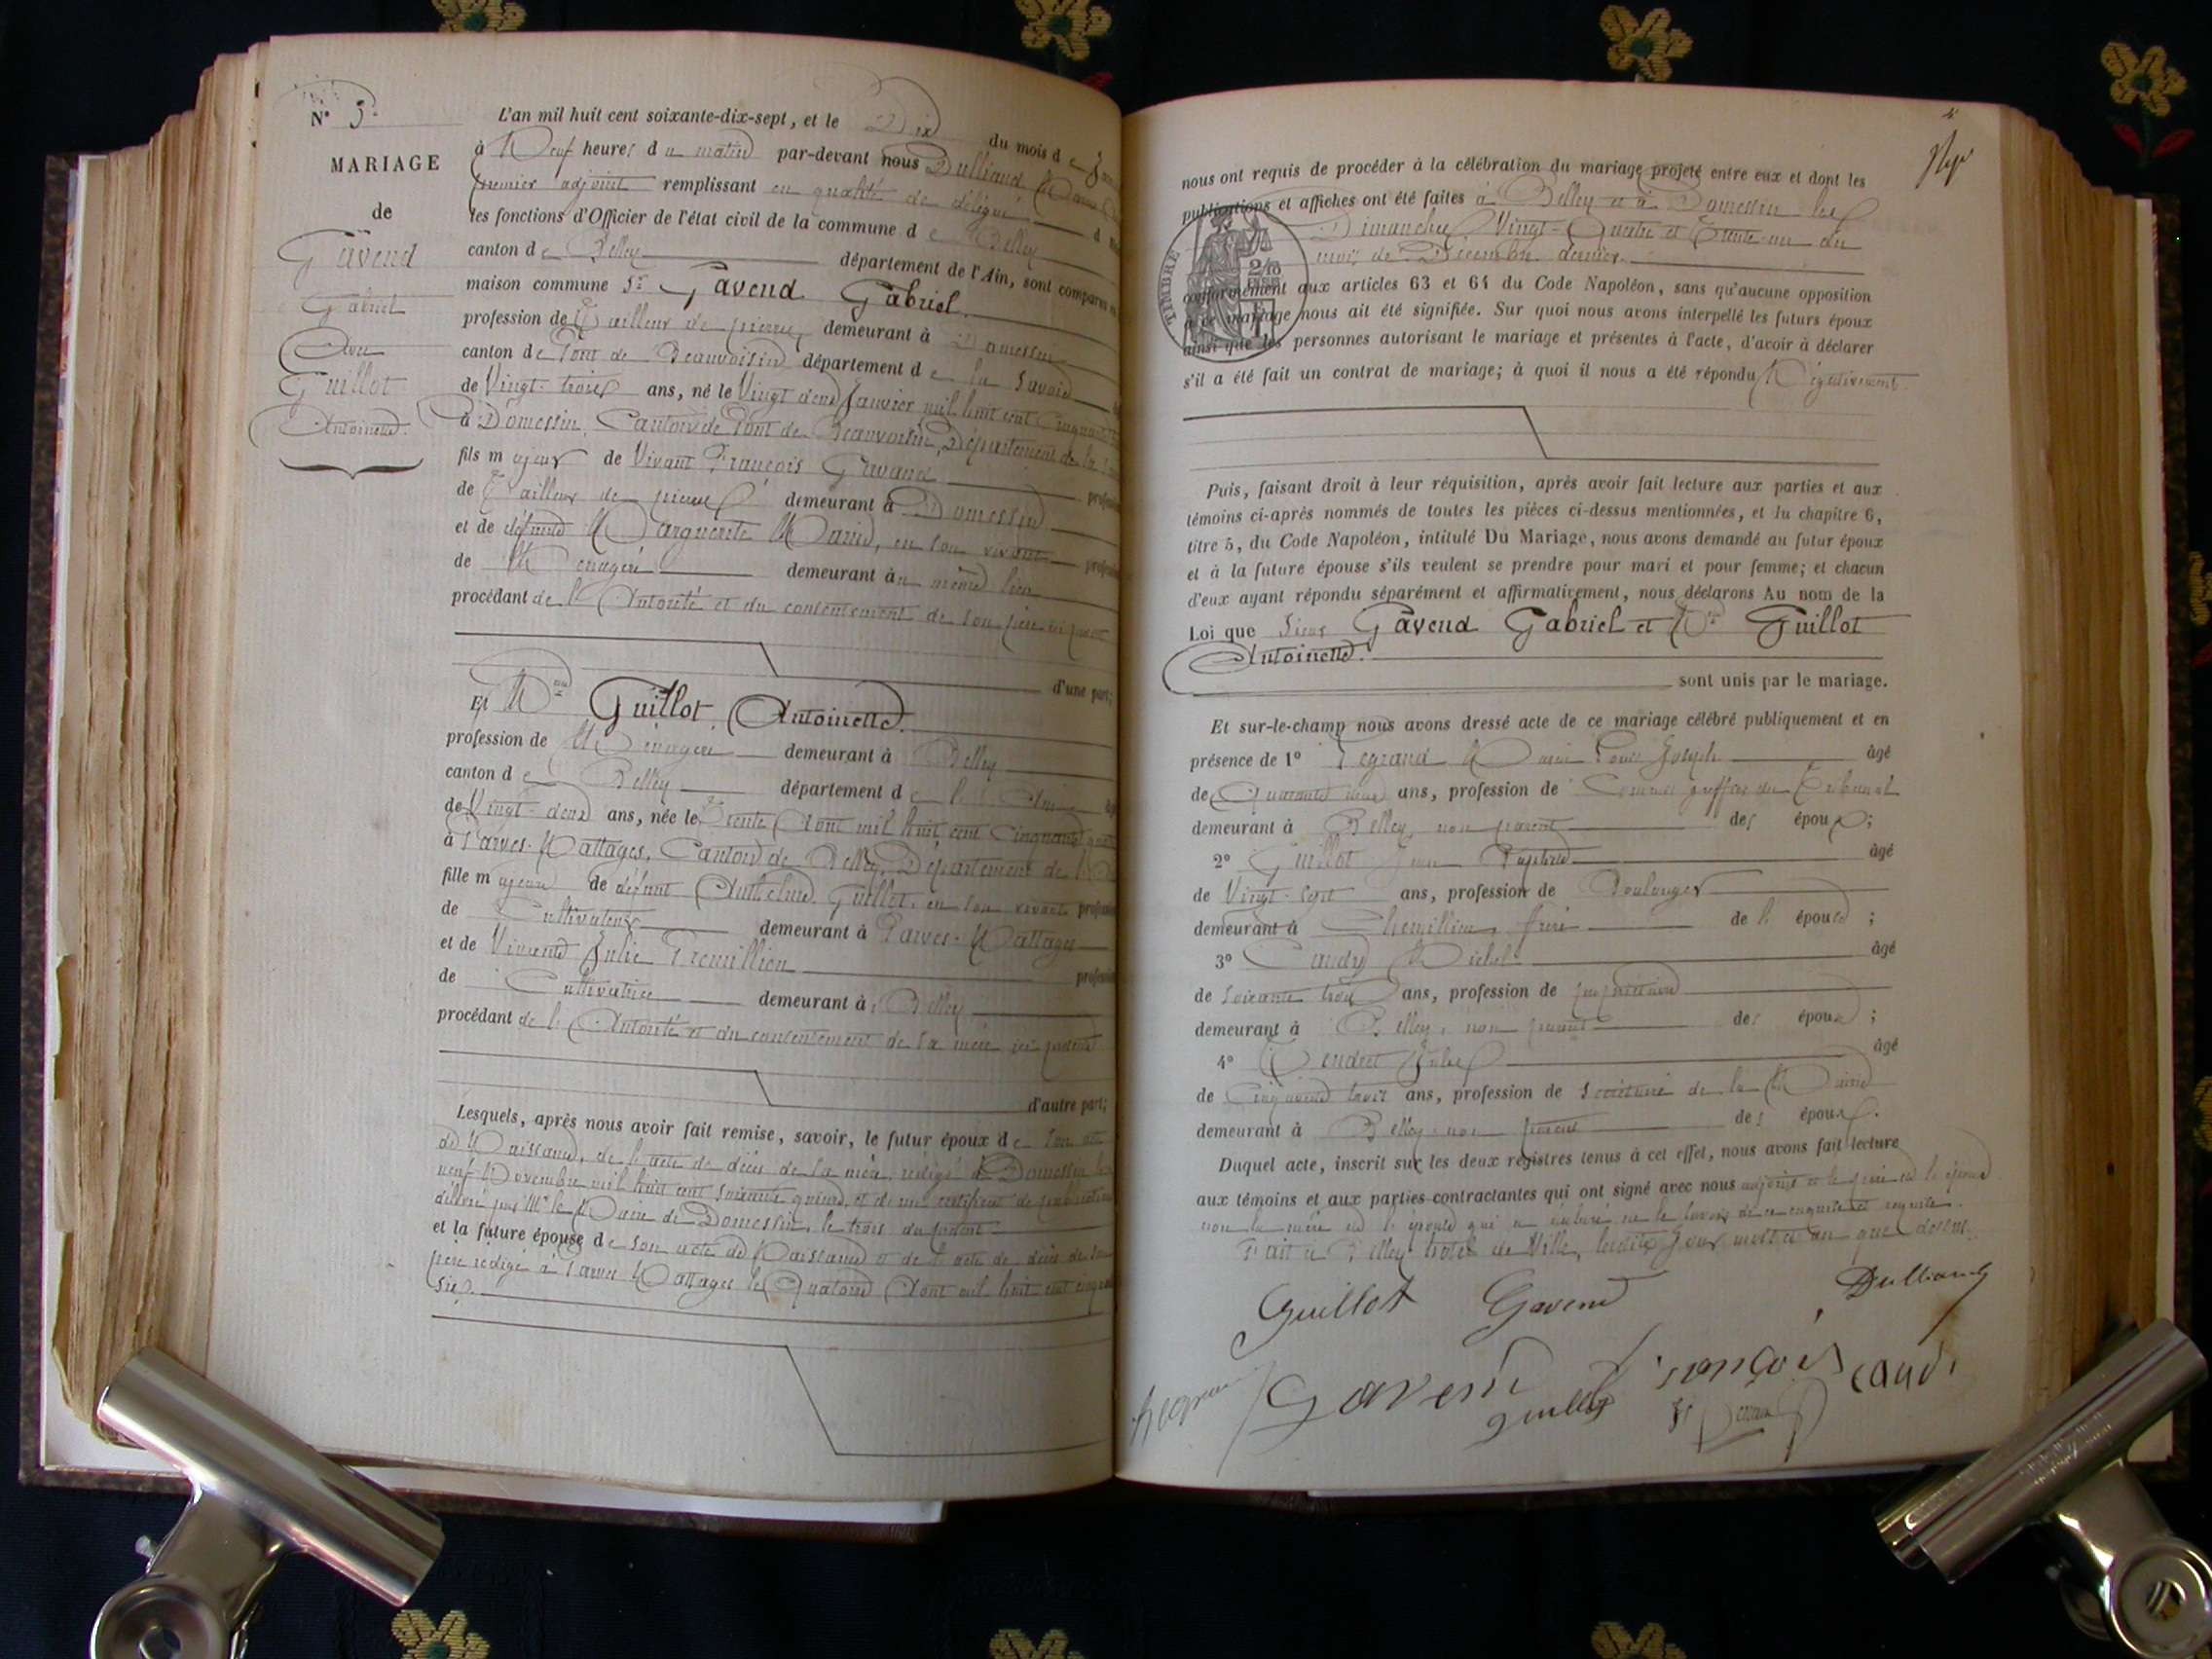 N° 3
MARIAGE
de
Gavend
Gabriel
Avec
Guillot
Antoinette.
L'an mil huit cent soixante-dix-sept, et le Dix du mois de
à Neuf heures du matin par-devant nous Dulliand
premier adjoint remplissant en qualité de délégué
les fonctions d'Officier de l'état civil de la commune de Belley
canton de Belley département de l'Ain, sont comparus en
maison commune Sr Gavend Gabriel.
profession de Tailleur de pierres demeurant à Domessin
canton de Pont de Beauvoisin département de la Savoie
de Vingt-trois ans, né le Vingt deux Janvier mil huit cent Cinquante
à Domessin, Canton de Pont de Beauvoisin, Département de la
fils majeur de Vivant François Gavand
de Tailleur de pierres demeurant à Domessin
et de défunte Marguerite Marie, en son vivant
de Ménagère demeurant au même lieu
procédant de l'Autorité et du consentement de son père ici présent
d'une part;
Et Melle Guillot Antoinette.
profession de Ménagère demeurant à Belley
canton de Belley département de l'Ain
de Vingt-deux ans, née le Trente Août mil huit cent Cinquante quatre
à Parves-Nattages, Canton de Belley, Département de l'Ain
fille majeure de défunt Anthelme Guillot, en son vivant
de Cultivateur demeurant à Parves-Nattages
et de Vivante Julie Premillieu
de Cultivatrice demeurant à Belley
procédant de l'Autorité et du consentement de sa mère ici présente
d'autre part;
Lesquels, après nous avoir fait remise, savoir, le futur époux de son acte
de Naissance, de l'acte de décès de sa mère, rédigé à Domessin le
neuf Novembre mil huit cent soixante quinze, et d'un certificat de publication
délivré par Mr le Maire de Domessin, le trois du présent
et la future épouse de son acte de Naissance et de l'acte de décès de son
père rédigé à Parves Nattages le Quatorze Août mil huit cent cinquante
six.
nous ont requis de procéder à la célébration du mariage projeté entre eux et dont les
publications et affiches ont été faites à Belley et à Domessin les
Dimanches Vingt-Quatre et Trente-un du
mois de Décembre dernier.
TIMBRE
conformément aux articles 63 et 64 du Code Napoléon, sans qu'aucune opposition
à ce mariage nous ait été signifiée. Sur quoi nous avons interpellé les futurs époux
ainsi que les personnes autorisant le mariage et présentes à l'acte, d'avoir à déclarer
s'il a été fait un contrat de mariage; à quoi il nous a été répondu Négativement.
Puis, faisant droit à leur réquisition, après avoir fait lecture aux parties et aux
témoins ci-après nommés de toutes les pièces ci-dessus mentionnées, et lu chapitre 6,
titre 5, du Code Napoléon, intitulé Du Mariage, nous avons demandé au futur époux
et à la future épouse s'ils veulent se prendre pour mari et pour femme; et chacun
d'eux ayant répondu séparément et affirmativement, nous déclarons Au nom de la
Loi que Sieur Gavend Gabriel et Melle Guillot
Antoinette.
sont unis par le mariage.
Et sur-le-champ nous avons dressé acte de ce mariage célébré publiquement et en
présence de 1° Legrand Marie Louis Joseph âgé
de Quarante deux ans, profession de Commis greffier du Tribunal
demeurant à Belley, non parent des époux;
2° Guillot Jean Baptiste âgé
de Vingt-sept ans, profession de Boulanger
demeurant à frère de l'épouse;
3° Caudy Michel âgé
de soixante trois ans, profession de propriétaire
demeurant à Belley, non parent des époux;
4° Tendret Jules âgé
de Cinquante trois ans, profession de Secrétaire de la Mairie
demeurant à Belley non parent des époux.
Duquel acte, inscrit sur les deux registres tenus à cet effet, nous avons fait lecture
aux témoins et aux parties contractantes qui ont signé avec nous adjoint et le père de l'époux
non la mère de l'épouse qui a déclaré ne le savoir de ce enquise et requise.
Fait à Belley hôtel de Ville, lesdits jour, mois et an que dessus.
Guillot Gavend Dulliand
Gavend François Caudi
Guillot